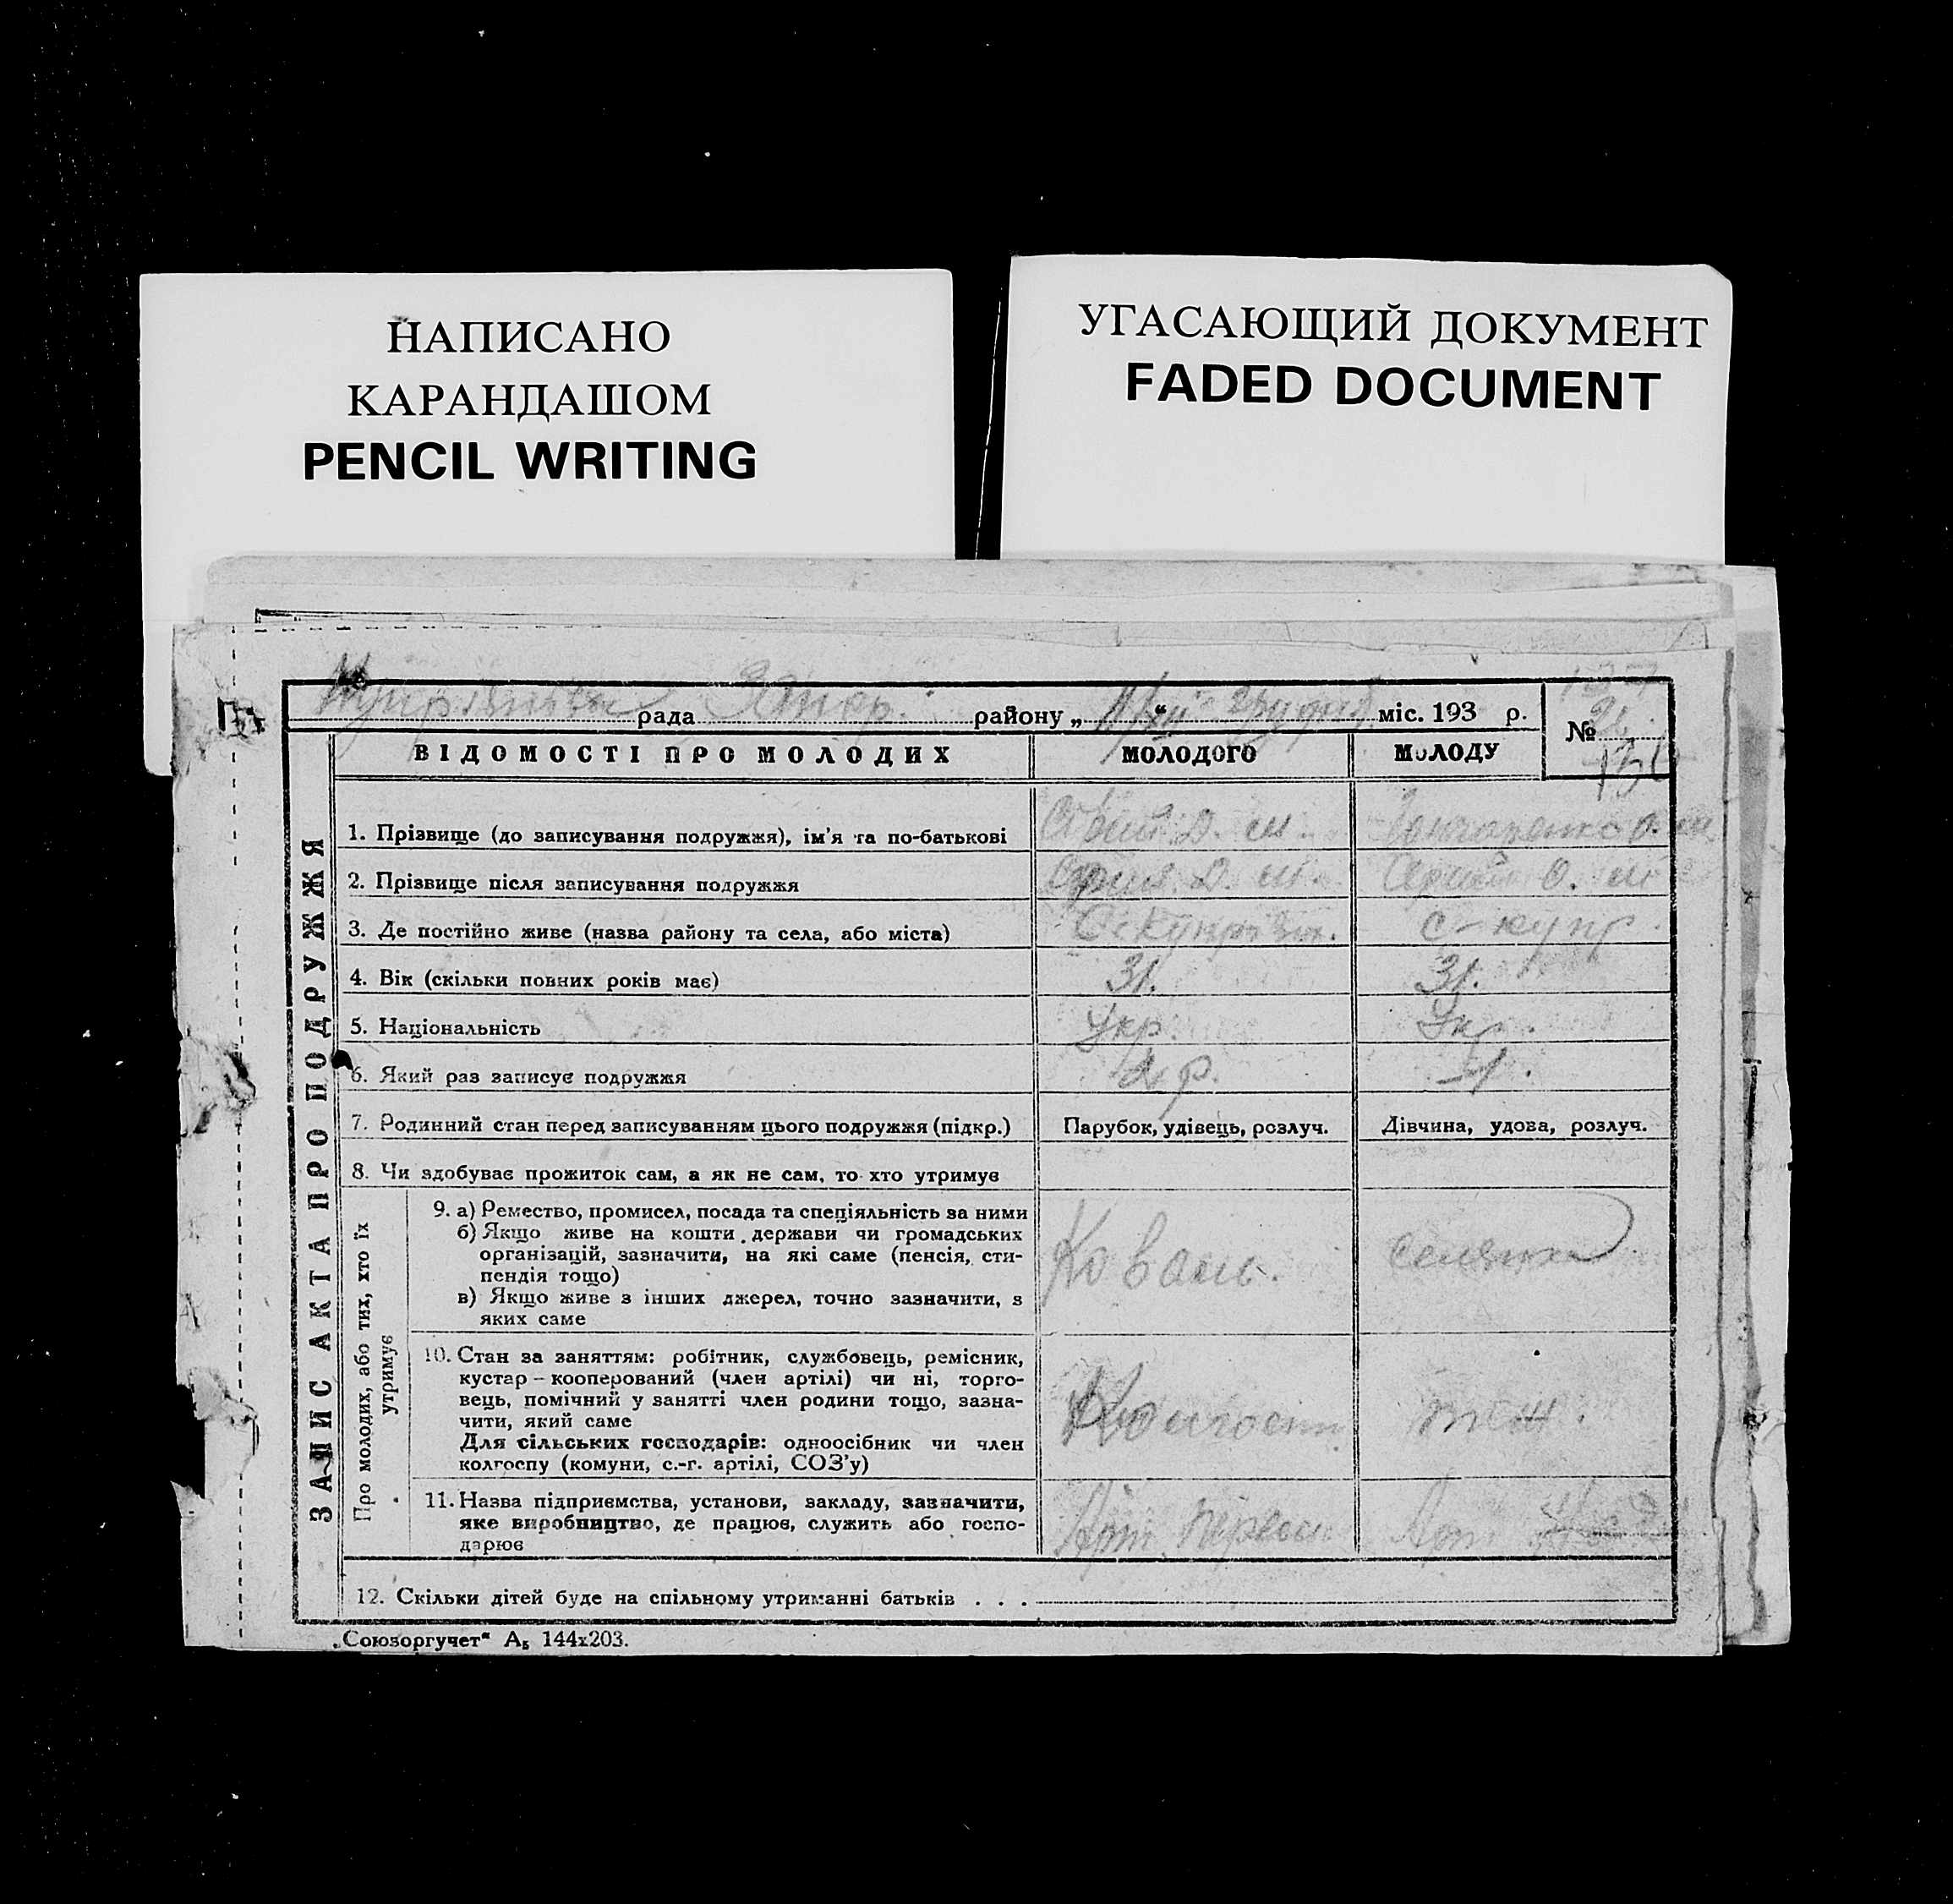 НАПИСАНО
КАРАНДАШОМ
PENCIL WRITING
УГАСАЮЩИЙ ДОКУМЕНТ
FADED DOCUMENT
рада району „ “ міс. 193 р.
№
ВІДОМОСТІ ПРО МОЛОДИХ МОЛОДОГО МОЛОДУ
ЗАПИС АКТА ПРО ПОДРУЖЖЯ
1. Прізвище (до записування подружжя), ім’я та по-батькові
2. Прізвище після записування подружжя
3. Де постійно живе (назва району та села, або міста)
4. Вік (скільки повних років має) 31. 31.
5. Національність Укр. Укр.
6. Який раз записує подружжя
7. Родинний стан перед записуванням цього подружжя (підкр.) Парубок, удівець, розлуч. Дівчина, удова, розлуч.
8. Чи здобуває прожиток сам, а як не сам, то хто утримує
Про молодих, або тих, хто їх
утримує
9. а) Ремество, промисел, посада та спеціяльність за ними
б) Якщо живе на кошти держави чи громадських
організацій, зазначити, на які саме (пенсія, сти-
пендія тощо)
в) Якщо живе з інших джерел, точно зазначити, з
яких саме
Коваль. селянка
10. Стан за заняттям: робітник, службовець, ремісник,
кустар – кооперований (член артілі) чи ні, торго-
вець, помічний у занятті член родини тощо, зазна-
чити, який саме
Для сільських господарів: одноосібник чи член
колгоспу (комуни, с.-г. артілі, СОЗ’у)
11. Назва підприємства, установи, закладу, зазначити,
яке виробництво, де працює, служить або госпо-
дарює
Арт. Арт.
12. Скільки дітей буде на спільному утриманні батьків . . .
„Союзоргучет“ А₅ 144х203.